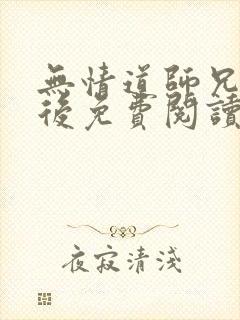 無情道師兄
後免費閱讀
夜寂清淺